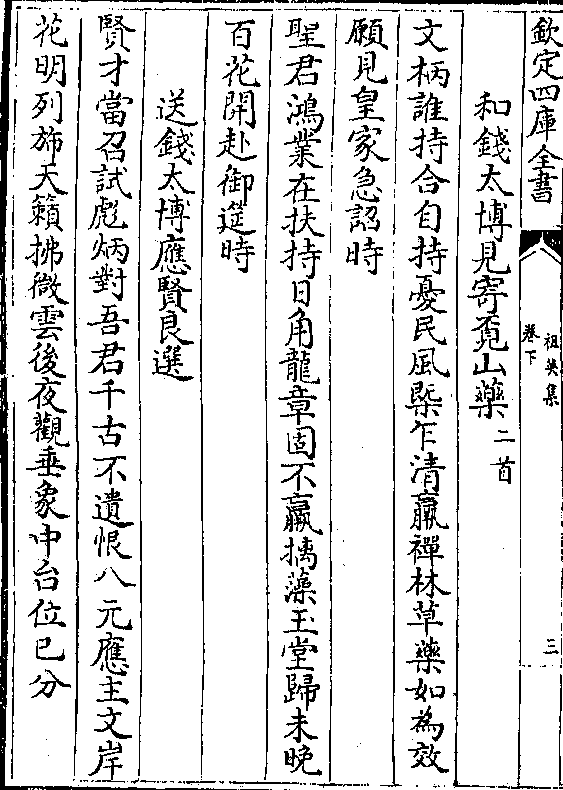 欽定四庫全書
祖英集
卷下
三
和錢太博見寄覔山藥二首
文柄誰持合自持憂民風槩乍清羸禪林草藥如為效
願見皇家急詔時
聖君鴻業在扶持日角龍章固不羸摛藻玉堂歸未晚
百花開赴御筵時
送錢太博應賢良選
賢才當召試彪炳對吾君千古不遺恨八元應主文岸
花明列斾天籟拂微雲後夜觀垂象中台位已分